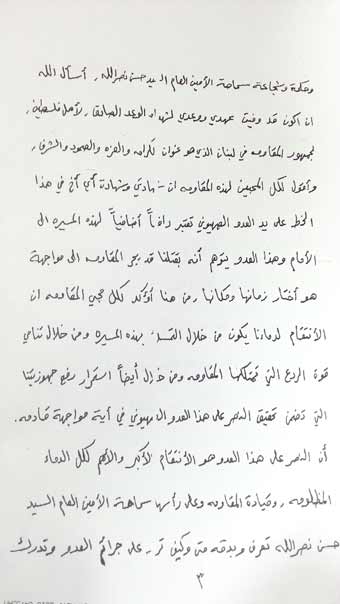 وحكمة وشجاعة سماحة الأمين العام السيد حسن نصرالله، أسأل الله
ان اكون قد وفيت عهدي ووعدي لشهداء الوعد الصادق، لأهل فلسطين،
لجمهور المقاومه في لبنان الذي هو عنوان لكرامه والعزه والصمود والشرف،
وأقول لكل المحبين لهذه المقاومه ان شهادتي وشهادة أي أخ في هذا
الخط على يد العدو الصهيوني تعتبر دافعاً أضافياً لهذه المسيره الى
الأمام وهذا العدو يتوهم أنه بقتلنا قد يجر المقاومه الى مواجهة
هو أختار زمانها ومكانها، من هنا أؤكد لكل محبي المقاومه ان
الأنتقام لدمائنا يكون من خلال التمسك بهذه المسيره ومن خلال تنامي
قوة الردع التي تمتلكها المقاومه ومن خلال أيضاً استمرار رفع جهوزيتنا
التي تضمن تحقيق النصر على هذا العدو الصهيوني في أية مواجهة قادمه.
أن النصر على هذا العدو هو الأنتقام الأكبر والأهم لكل الدماء
المظلومه، وقيادة المقاومه وعلى رأسها سماحة الأمين العام السيد
حسن نصرالله تعرف وبدقه متى وكيف ترد على جرائم العدو وتدرك
٣